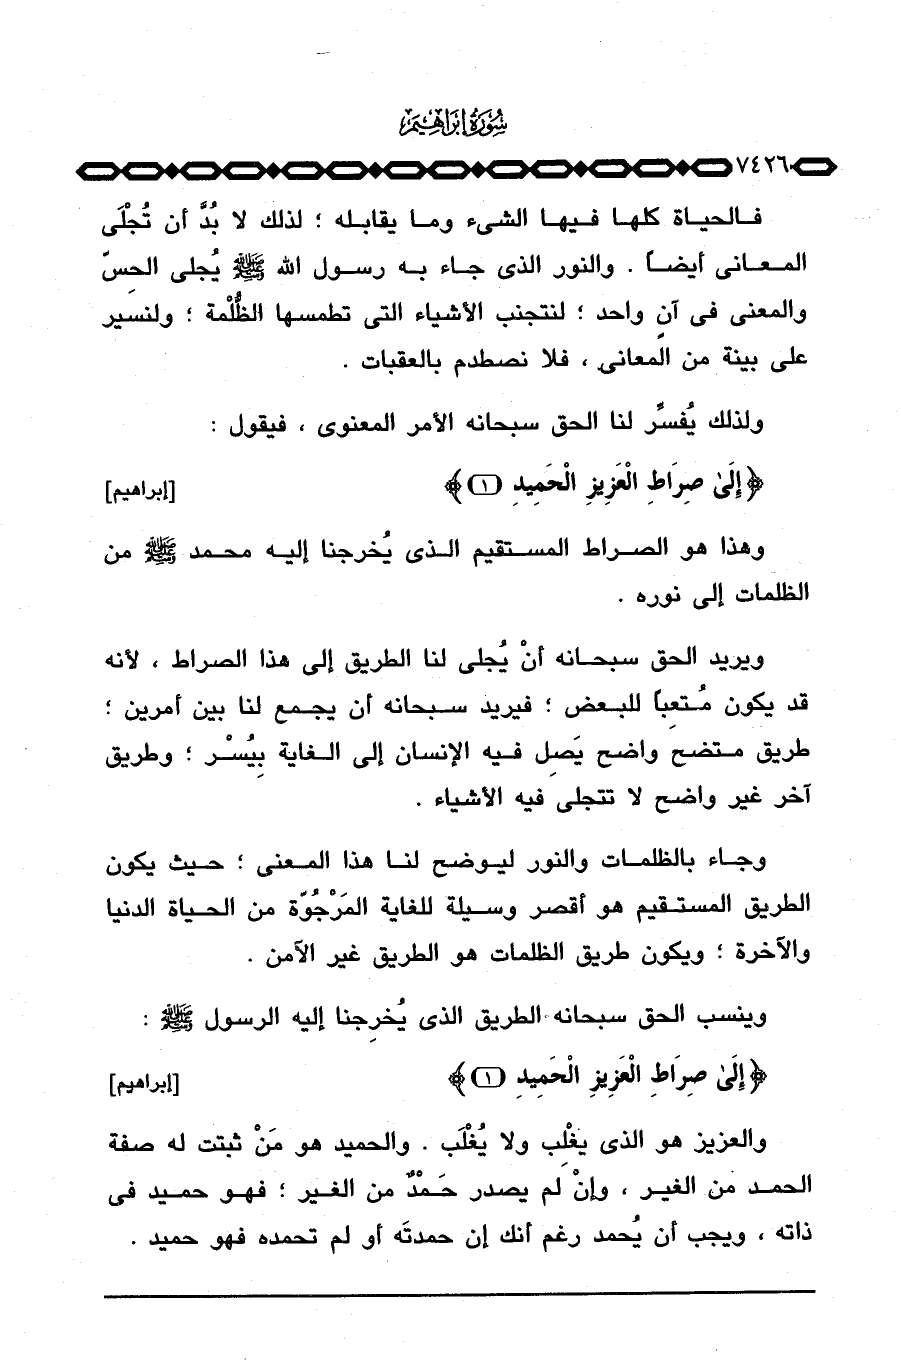 سُورَةُ إِبْرَاهِيمَ
٧٤٢٦
فـالحيـاة كلهـا فـيهـا الشىء ومـا يقابـله ؛ لذلك لا بُدَّ أن تُجْلَى
المـعـانى أيضـاً . والنور الذى جـاء بـه رسـول الله ﷺ يُجلى الحِسّ
والمعنى فى آنٍ واحد ؛ لنتجنب الأشياء التى تطمسها الظُّلْمة ؛ ولنسير
على بينة من المعانى ، فلا نصطدم بالعقبات .
ولذلك يُفسِّر لنا الحق سبحانه الأمر المعنوى ، فيقول :
﴿ إِلَىٰ صِرَاطِ الْعَزِيزِ الْحَمِيدِ (١) ﴾ [إبراهيم]
وهذا هو الصـراط المسـتقيم الـذى يُخرجنا إليـه محـمد ﷺ من
الظلمات إلى نوره .
ويريد الحق سبحـانه أنْ يُجلى لنا الطريق إلى هذا الصراط ، لأنه
قد يكون مُتعِباً للبعض ؛ فيريد سـبحانه أن يجـمع لنا بين أمرين ؛
طريق مـتضح واضح يَصِل فـيه الإنسان إلى الـغاية بِيُسْـر ؛ وطريق
آخر غير واضح لا تتجلى فيه الأشياء .
وجـاء بالظلمـات والنور ليـوضح لنـا هذا المـعنى ؛ حـيث يكون
الطريق المستـقيم هو أقصر وسـيلة للغاية المَرْجُوّة من الحـياة الدنيا
والآخرة ؛ ويكون طريق الظلمات هو الطريق غير الآمن .
وينسب الحق سبحانه الطريق الذى يُخرِجنا إليه الرسول ﷺ :
﴿ إِلَىٰ صِرَاطِ الْعَزِيزِ الْحَمِيدِ (١) ﴾ [إبراهيم]
والعزيز هو الذى يغْلِب ولا يُغْلَب . والحميد هو مَنْ ثبتت له صفة
الحمـد من الغيـر ، وإنْ لم يصدر حَـمْدٌ من الغير ؛ فهـو حمـيد فى
ذاته ، ويجب أن يُحمد رغم أنك إن حمدتَه أو لم تحمده فهو حميد .